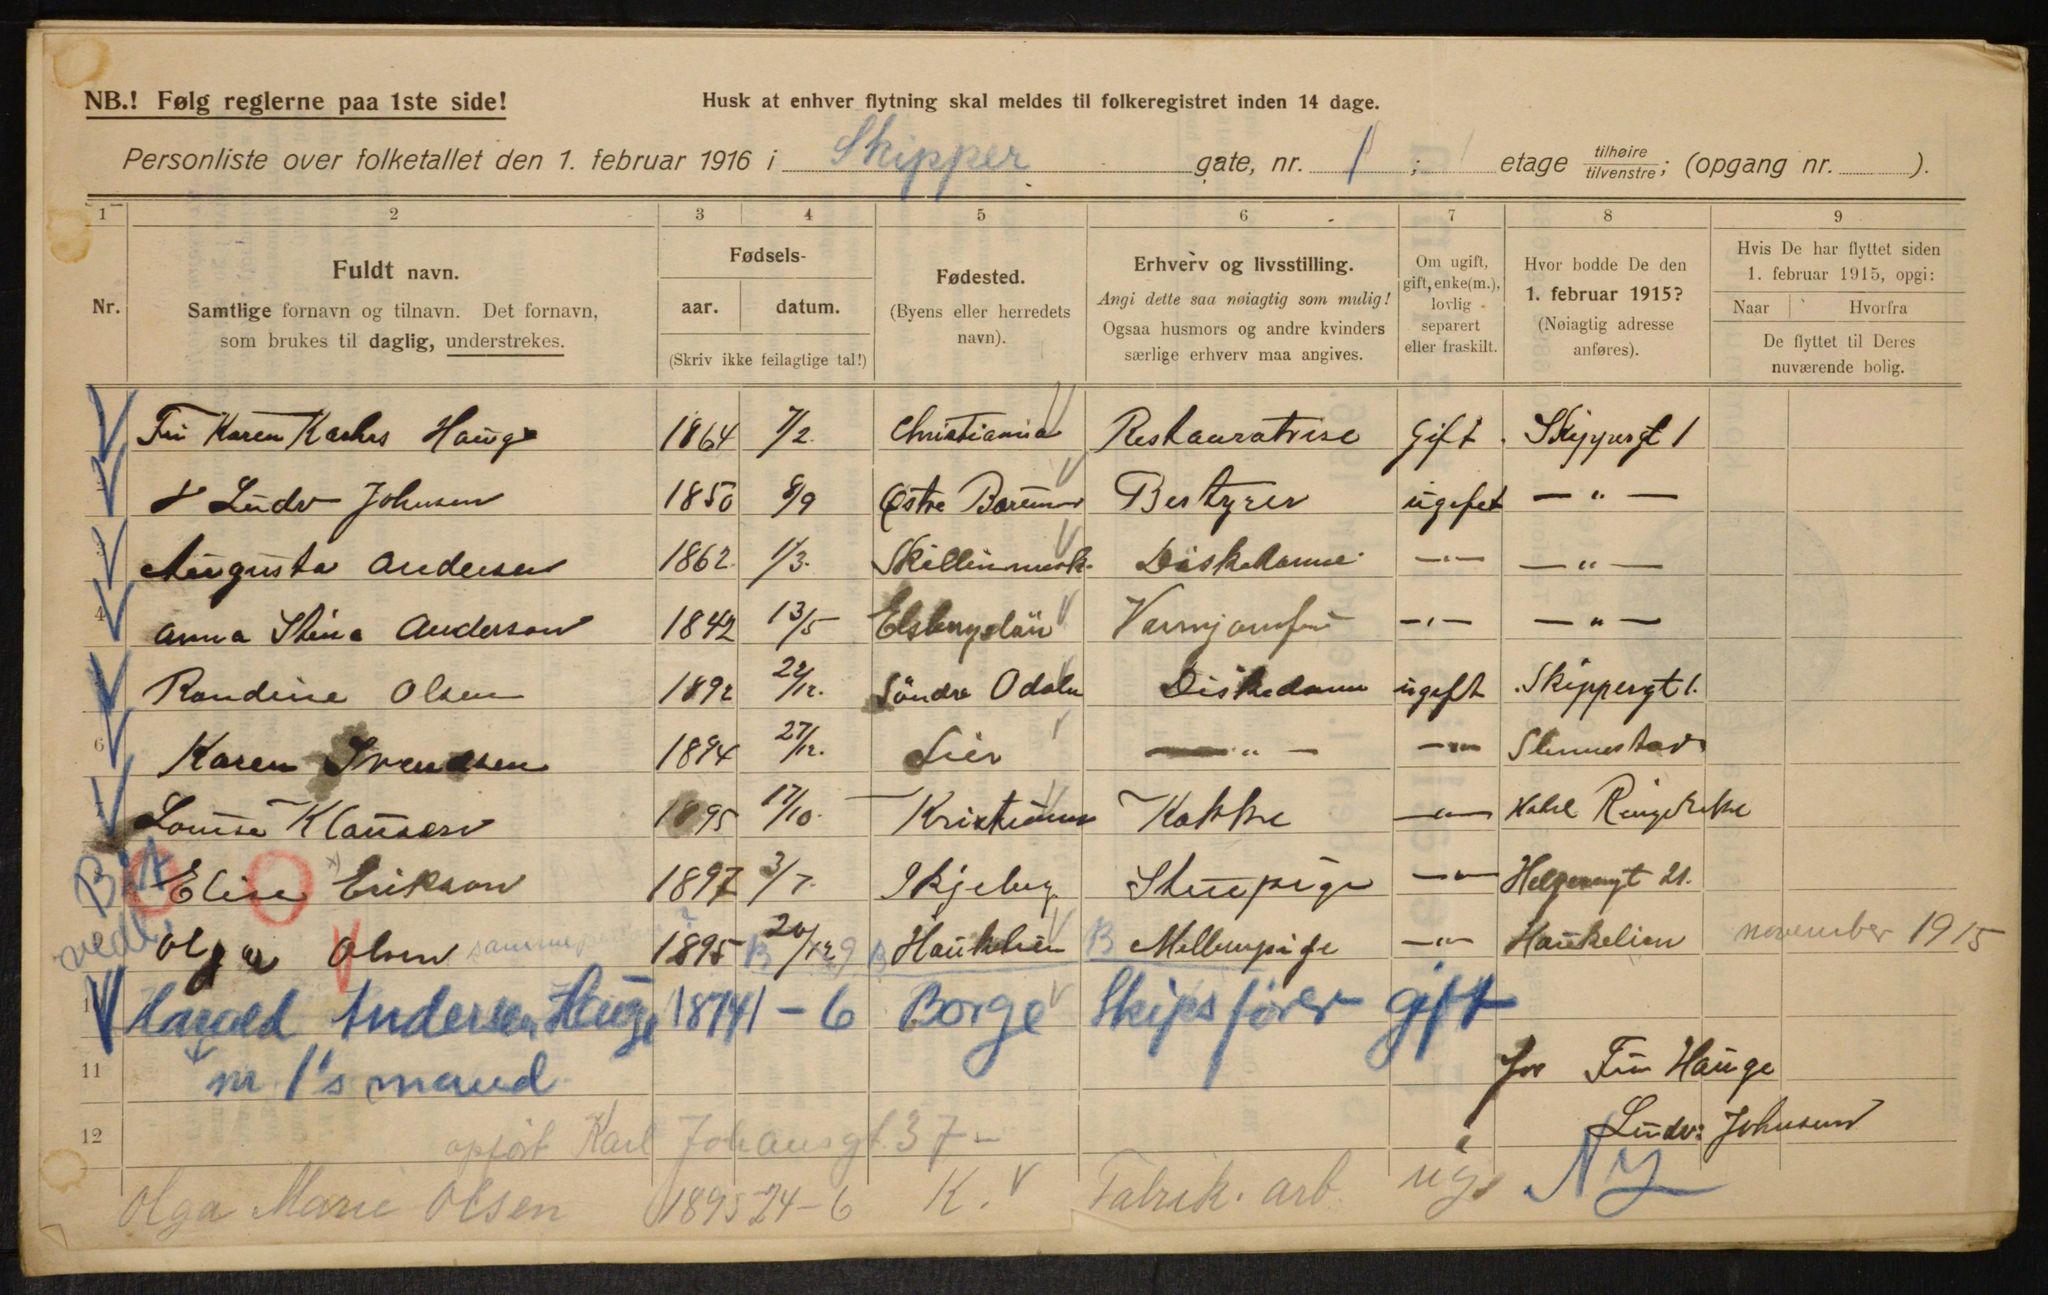 NB.! Følg reglerne paa 1ste side!
Husk at enhver flytning skal meldes til folkeregistret inden 14 dage.
Personliste over folketallet den 1. februar 1916 i Skipper gate, nr. 1 ; etage tilhøire tilvenstre ; (opgang nr. ).
1 2 3 4 5 6 7 8 9
Nr.
Fuldt navn.
Samtlige fornavn og tilnavn. Det fornavn,
som brukes til daglig, understrekes.
Fødsels-
aar. datum.
(Skriv ikke feilagtige tal!)
Fødested.
(Byens eller herredets
navn).
Erhverv og livsstilling.
Angi dette saa nøiagtig som mulig!
Ogsaa husmors og andre kvinders
særlige erhverv maa angives.
Om ugift,
gift, enke(m.),
lovlig
separert
eller fraskilt.
Hvor bodde De den
1. februar 1915?
(Nøiagtig adresse
anføres).
Hvis De har flyttet siden
1. februar 1915, opgi:
Naar Hvorfra
De flyttet til Deres
nuværende bolig.
Karen Hauge 1864 7/2. Christiania Restauratrise Gift Skippergt 1
2 Ludv Johnsen 1850 8/9 Østre Bestyrer ugift — " —
3 Augusta Andersen 1862. 1/3. Diskedame — " — — " —
4 Anna Stina Anderson 1842 13/5 — " — — " —
Randine Olsen 1892 22/12. Söndre Odalen Diskedame ugift Skippergt 1.
6 Karen Svendsen 1894 27/12. Lier — " — — " —
Louise Klausen 1895 17/10. Kristiania Kokke — " — Ringerike
Elise Erikson 1897 3/7. Skjeberg Stuepige — " — 21.
Olga Olsen samme person 1895 20/12 9 Haukelien Mellempige — " — Haukelien november 1915
Harald Andersen Hauge 1874 1-6 Borge Skipsfører gift
11 nr 1's mand
for Fru Hauge
12 opført Karl Johansgt. 37 —
Ludv: Johnsen
Olga Marie Olsen 1895 24-6 K. Fabrik. arb. ug. Ny